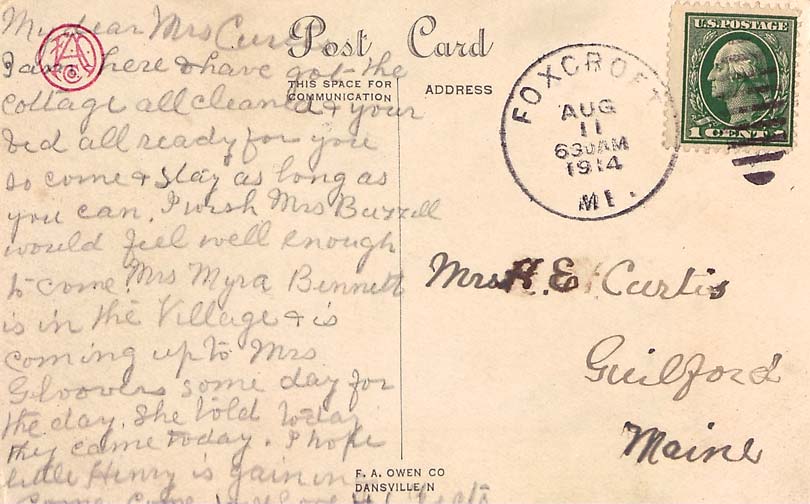 My dear Mrs Curtis
I am here & have got the
cottage all cleaned & your
bed all ready for you
so come & stay as long as
you can. I wish Mrs Buzzell
would feel well enough
to come. Mrs Myra Bennett
is in the Village & is
coming up to Mrs
Gloovers some day for
the day. She told today
they came today. I hope
little Henry is gaining
Come Come
Post Card
THIS SPACE FOR
COMMUNICATION
ADDRESS
FOXCROFT
AUG
11
630AM
1914
ME.
U.S. POSTAGE
1 CENT 1
Mrs H. E. Curtis
Guilford
Maine
F. A. OWEN CO
DANSVILLE N